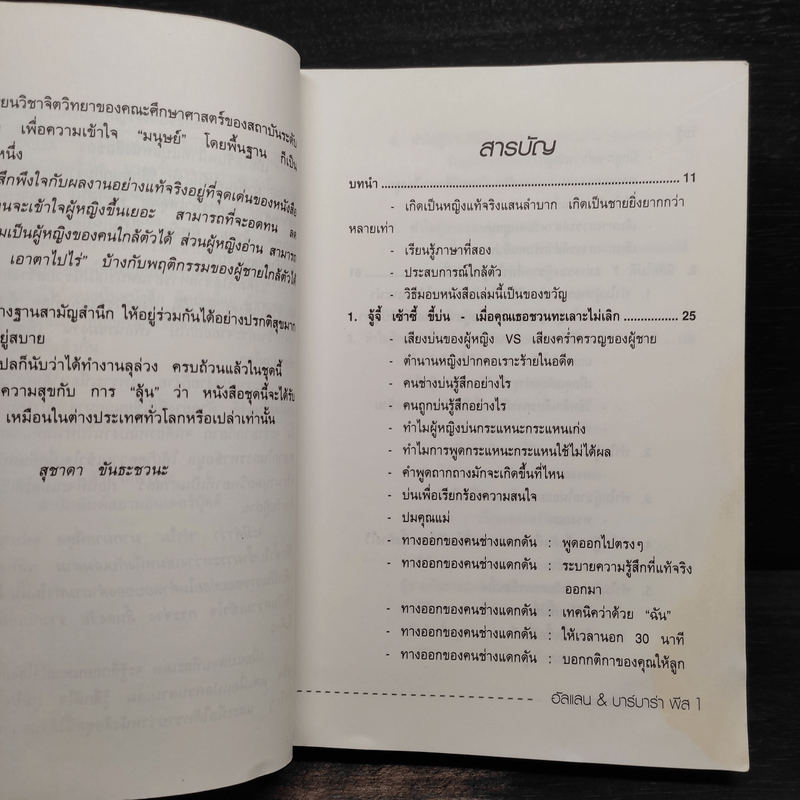 ยนวิชาจิตวิทยาของคณะศึกษาศาสตร์ของสถาบันระดับ
เพื่อความเข้าใจ “มนุษย์” โดยพื้นฐาน ก็เป็น
หนึ่ง
สึกพึงใจกับผลงานอย่างแท้จริงอยู่ที่จุดเด่นของหนังสือ
านจะเข้าใจผู้หญิงขึ้นเยอะ สามารถที่จะอดทน ลด
มเป็นผู้หญิงของคนใกล้ตัวได้ ส่วนผู้หญิงอ่าน สามารถ
เอาตาไปไร่” บ้างกับพฤติกรรมของผู้ชายใกล้ตัวได้
างฐานสามัญสำนึก ให้อยู่ร่วมกันได้อย่างปรกติสุขมาก
ยู่สบาย
ปลก็นับว่าได้ทำงานลุล่วง ครบถ้วนแล้วในชุดนี้
ความสุขกับ การ “ลุ้น” ว่า หนังสือชุดนี้จะได้รับ
เหมือนในต่างประเทศทั่วโลกหรือเปล่าเท่านั้น
สุชาดา ขันธะชวนะ
สารบัญ
บทนำ ........................................................................ 11
- เกิดเป็นหญิงแท้จริงแสนลำบาก เกิดเป็นชายยิ่งยากกว่า
หลายเท่า
- เรียนรู้ภาษาที่สอง
- ประสบการณ์ใกล้ตัว
- วิธีมอบหนังสือเล่มนี้เป็นของขวัญ
1. จู้จี้ เซ้าซี้ ขี้บ่น - เมื่อคุณเธอชวนทะเลาะไม่เลิก ................. 25
- เสียงบ่นของผู้หญิง VS เสียงคร่ำครวญของผู้ชาย
- ตำนานหญิงปากคอเราะร้ายในอดีต
- คนช่างบ่นรู้สึกอย่างไร
- คนถูกบ่นรู้สึกอย่างไร
- ทำไมผู้หญิงบ่นกระแหนะกระแหนเก่ง
- ทำไมการพูดกระแหนะกระแหนใช้ไม่ได้ผล
- คำพูดถากถางมักจะเกิดขึ้นที่ไหน
- บ่นเพื่อเรียกร้องความสนใจ
- ปมคุณแม่
- ทางออกของคนช่างแดกดัน : พูดออกไปตรงๆ
- ทางออกของคนช่างแดกดัน : ระบายความรู้สึกที่แท้จริง
ออกมา
- ทางออกของคนช่างแดกดัน : เทคนิคว่าด้วย “ฉัน”
- ทางออกของคนช่างแดกดัน : ให้เวลานอก 30 นาที
- ทางออกของคนช่างแดกดัน : บอกกติกาของคุณให้ลูก
อัลแลน & บาร์บาร่า พีส 1